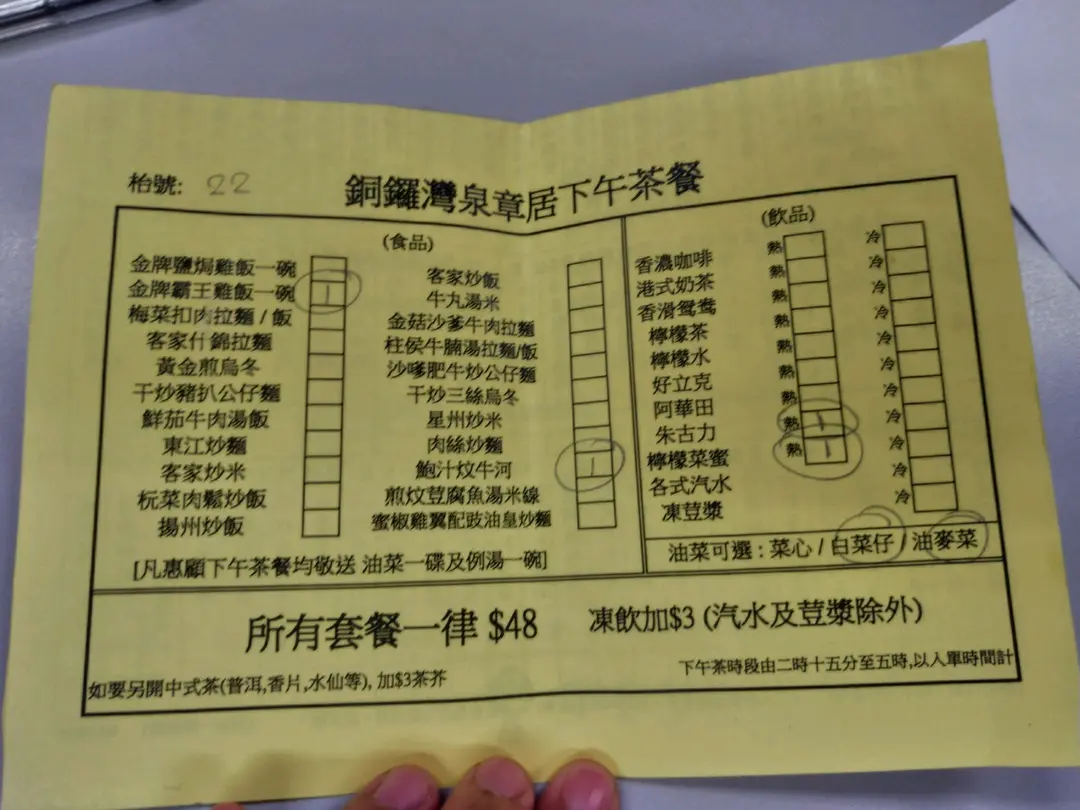 枱號: 22
銅鑼灣泉章居下午茶餐
(食品)
金牌鹽焗雞飯一碗
金牌霸王雞飯一碗 1
梅菜扣肉拉麵 / 飯
客家什錦拉麵
黃金煎烏冬
干炒豬扒公仔麵
鮮茄牛肉湯飯
東江炒麵
客家炒米
杬菜肉鬆炒飯
揚州炒飯
客家炒飯
牛丸湯米
金菇沙爹牛肉拉麵
柱侯牛腩湯拉麵/飯
沙嗲肥牛炒公仔麵
干炒三絲烏冬
星州炒米
肉絲炒麵
鮑汁炆牛河 1
煎炆荳腐魚湯米線
蜜椒雞翼配豉油皇炒麵
[凡惠顧下午茶餐均敬送 油菜一碟及例湯一碗]
(飲品)
香濃咖啡 熱 冷
港式奶茶 熱 冷
香滑鴛鴦 熱 冷
檸檬茶 熱 冷
檸檬水 熱 冷
好立克 熱 冷
阿華田 熱 冷
朱古力 熱 1 冷
檸檬菜蜜 熱 1 冷
各式汽水 冷
凍荳漿 冷
油菜可選 : 菜心 / 白菜仔 / 油麥菜
所有套餐一律 $48
凍飲加$3 (汽水及荳漿除外)
如要另開中式茶(普洱,香片,水仙等), 加$3茶芥
下午茶時段由二時十五分至五時,以入單時間計